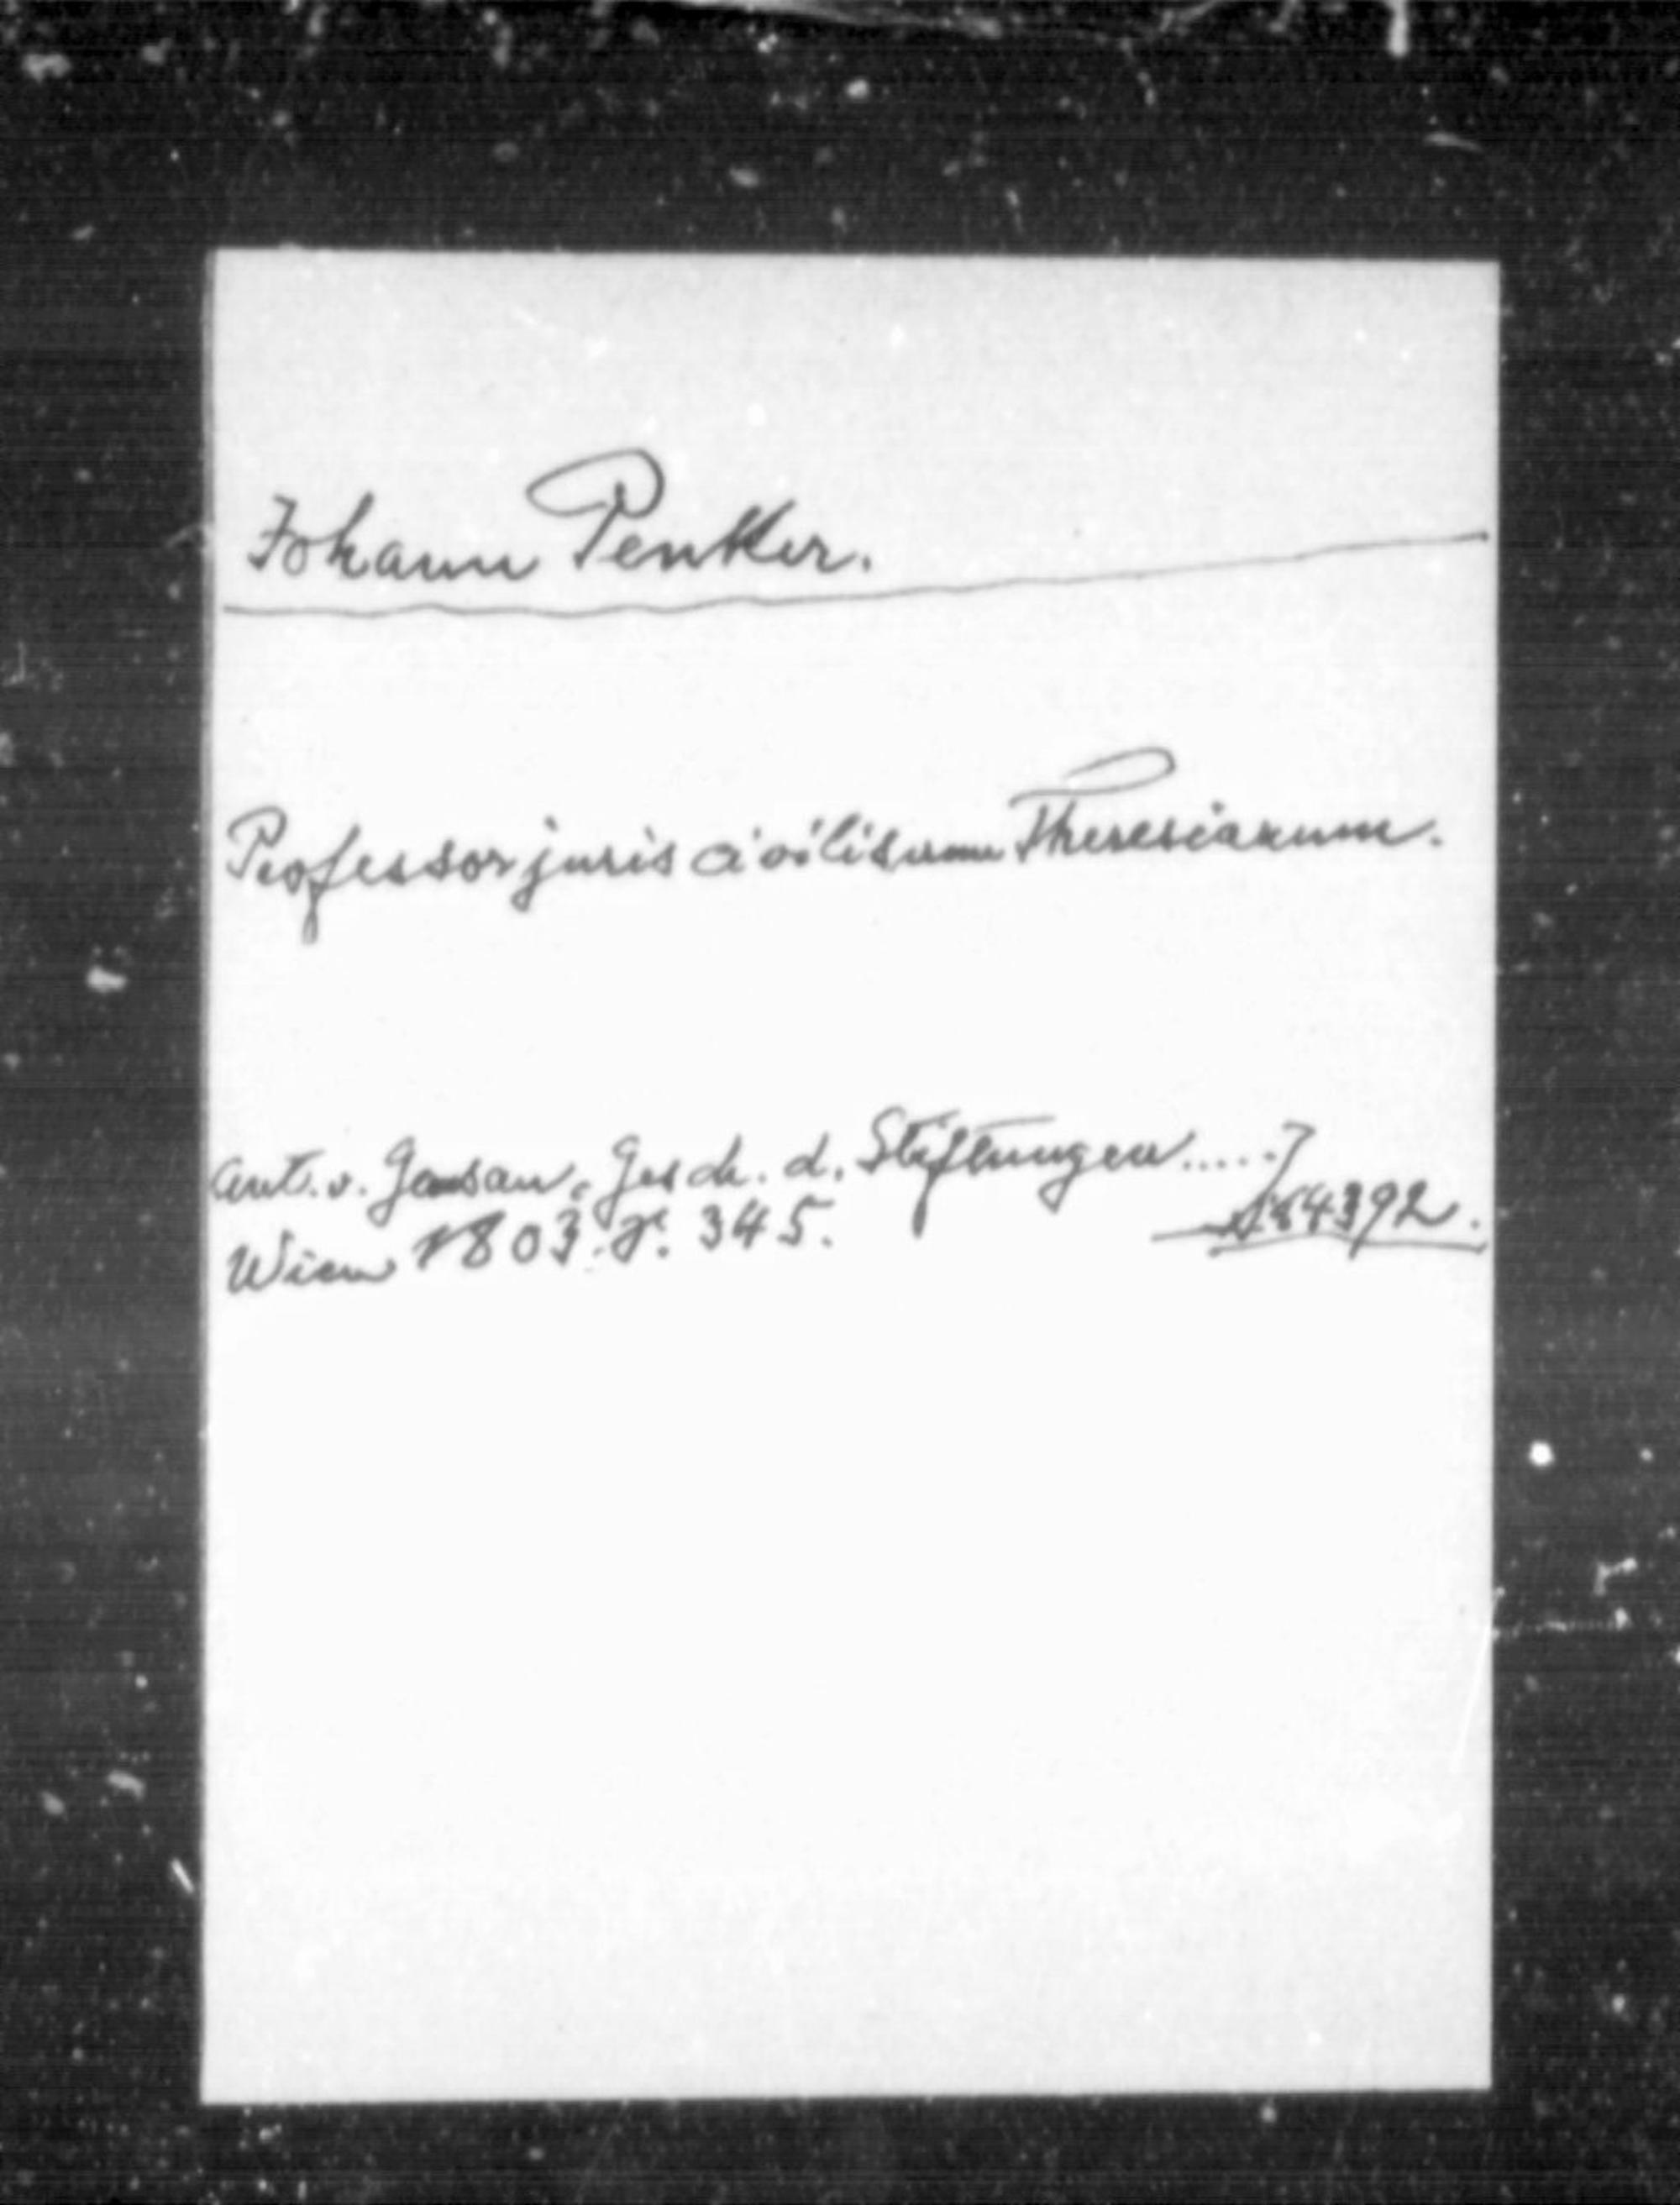 Johann Penkler.
Professor juris civilis am Theresianum.
Ant. v. Geusau, Gesch. d. Stiftungen.....
Wien 1803. S. 345. A 84392.